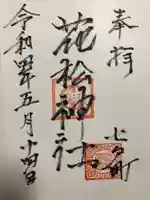 奉拝
七戸町
花松神社
令和四年五月十四日